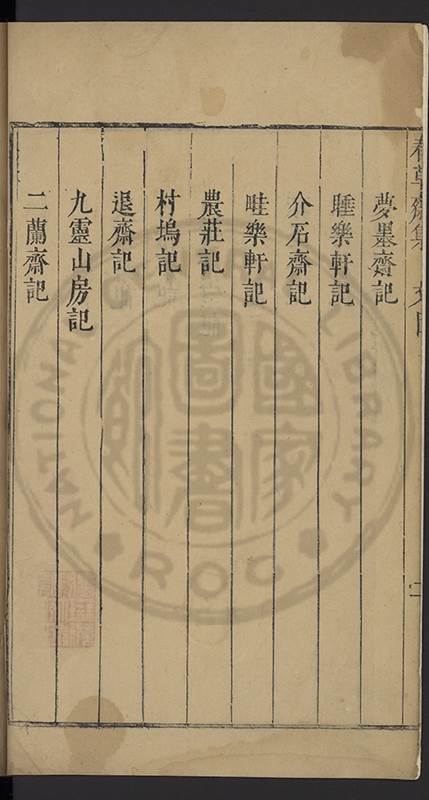 春草齋集 文目
夢墨齋記
睡樂軒記
介石齋記
畦樂軒記
農莊記
村塢記
退齋記
九靈山房記
二蘭齋記
二
國家圖書館
NATIONAL LIBRARY
ROC